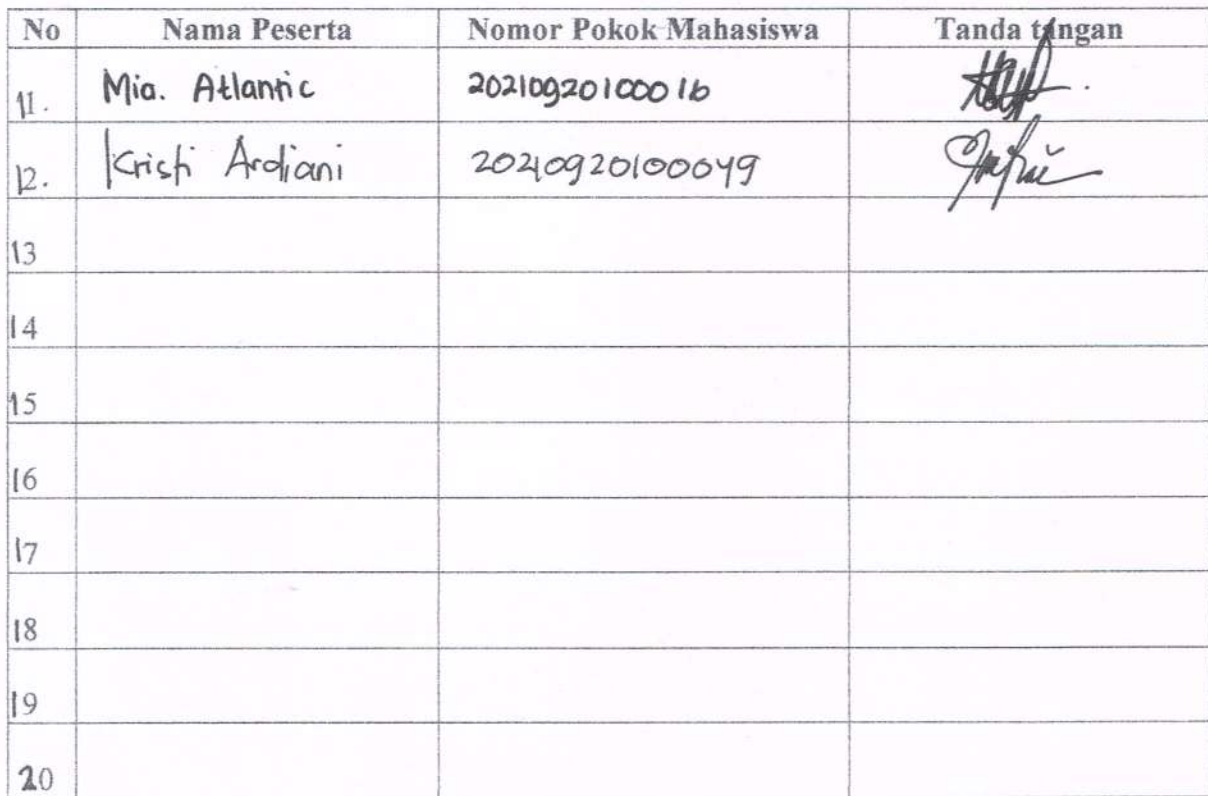 No Nama Peserta Nomor Pokok Mahasiswa Tanda tangan
11. Mia. Atlantic 20210920100016
12. Kristi Ardiani 20210920100049
13
14
15
16
17
18
19
20